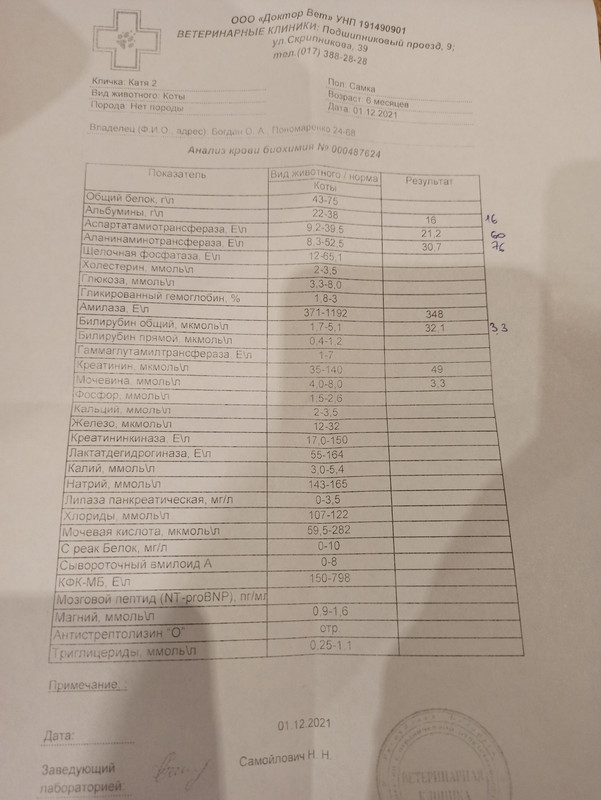 ООО «Доктор Вет» УНП 191490901
ВЕТЕРИНАРНЫЕ КЛИНИКИ: Подшипниковый проезд, 9;
ул.Скрипникова, 39
тел.(017) 388-28-28
Кличка: Катя 2
Пол: Самка
Вид животного: Коты
Возраст: 6 месяцев
Порода: Нет породы
Дата: 01.12.2021
Владелец (Ф.И.О., адрес): Богдан О. А. Пономаренко 24-68
Анализ крови биохимия № 000487624
Показатель Вид животного / норма Результат
Коты
Общий белок, г\л 43-75
Альбумины, г\л 22-38 16 16
Аспартатамиотрансфераза, Е\л 9,2-39,5 21,2 60
Аланинаминотрансфераза, Е\л 8,3-52,5 30,7 76
Щелочная фосфатаза, Е\л 12-65,1
Холестерин, ммоль\л 2-3,5
Глюкоза, ммоль\л 3,3-8,0
Гликированный гемоглобин, % 1,8-3
Амилаза, Е\л 371-1192 348
Билирубин общий, мкмоль\л 1,7-5,1 32,1 3,3
Билирубин прямой, мкмоль\л 0,4-1,2
Гаммаглутамилтрансфераза, Е\л 1-7
Креатинин, мкмоль\л 35-140 49
Мочевина, ммоль\л 4,0-8,0 3,3
Фосфор, ммоль\л 1,5-2,6
Кальций, ммоль\л 2-3,5
Железо, мкмоль\л 12-32
Креатининкиназа, Е\л 17,0-150
Лактатдегидрогиназа, Е\л 55-164
Калий, ммоль\л 3,0-5,4
Натрий, ммоль\л 143-165
Липаза панкреатическая, мг/л 0-3,5
Хлориды, ммоль\л 107-122
Мочевая кислота, мкмоль\л 59,5-282
С реак Белок, мг/л 0-10
Сывороточный амилоид А 0-8
КФК-МБ, Е\л 150-798
Мозговой пептид (NT-proBNP), пг/мл
Магний, ммоль\л 0,9-1,6
Антистрептолизин "О" отр
Триглицериды, ммоль\л 0,25-1,1
Примечание: :
Дата: 01.12.2021
Заведующий
лабораторией: Самойлович Н. Н.
ВЕТЕРИНАРНАЯ
КЛИНИКА